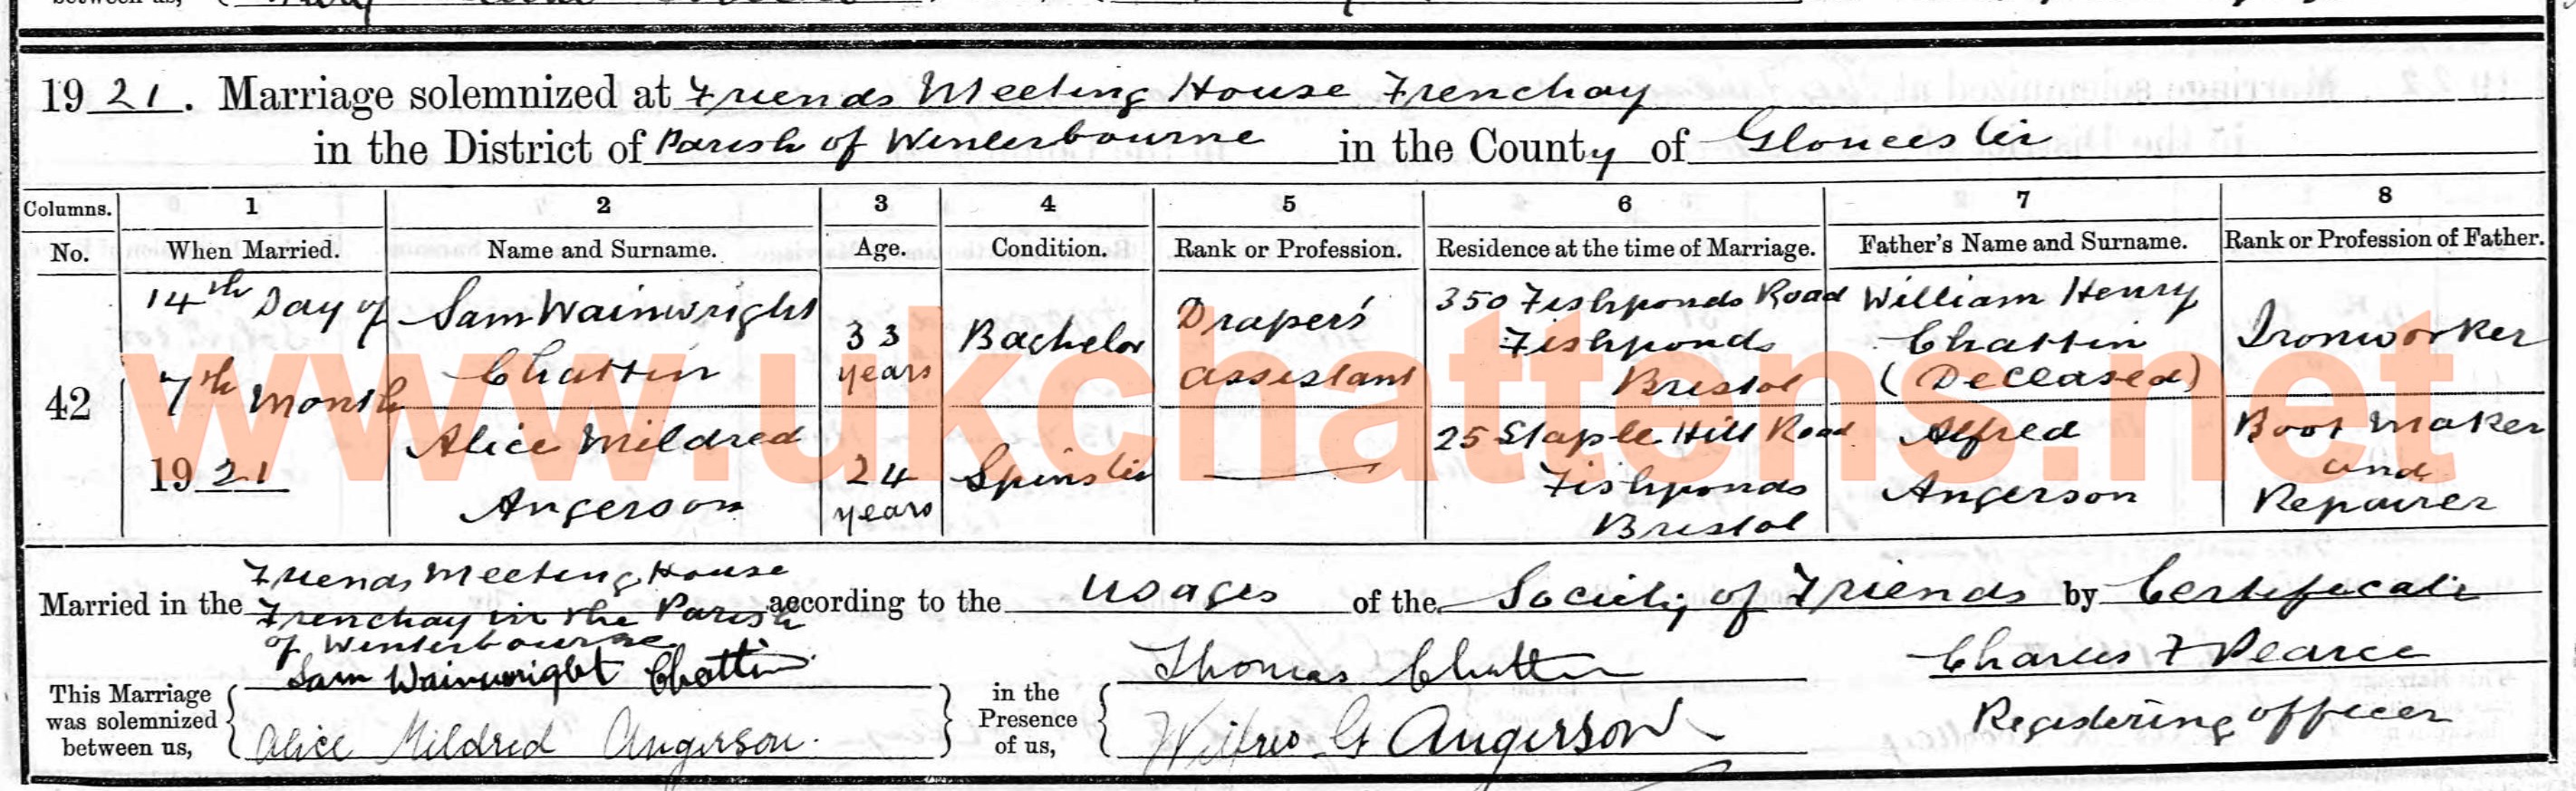 1921. Marriage solemnized at Friends Meeting House Frenchay
in the District of Parish of Winterbourne in the County of Gloucester
Columns. 1 2 3 4 5 6 7 8
No. When Married. Name and Surname. Age. Condition. Rank or Profession. Residence at the time of Marriage. Father's Name and Surname. Rank or Profession of Father.
42
14th Day of
7th Month
1921
Sam Wainwright
Chattin
33
years
Bachelor
Draper's
assistant
350 Fishponds Road
Fishponds
Bristol
William Henry
Chattin
(Deceased)
Ironworker
Alice Mildred
Angerson
24
years
Spinster
25 Staple Hill Road
Fishponds
Bristol
Alfred
Angerson
Boot Maker
and
Repairer
www.ukchattens.net
Married in the Friends Meeting House
Frenchay in the Parish
of Winterbourne
according to the usages of the Society of Friends by Certificate
This Marriage
was solemnized
between us,
Sam Wainwright Chattin
Alice Mildred Angerson.
in the
Presence
of us,
Thomas Chattin
Wilfred G Angerson
Charles F Pearce
Registering officer